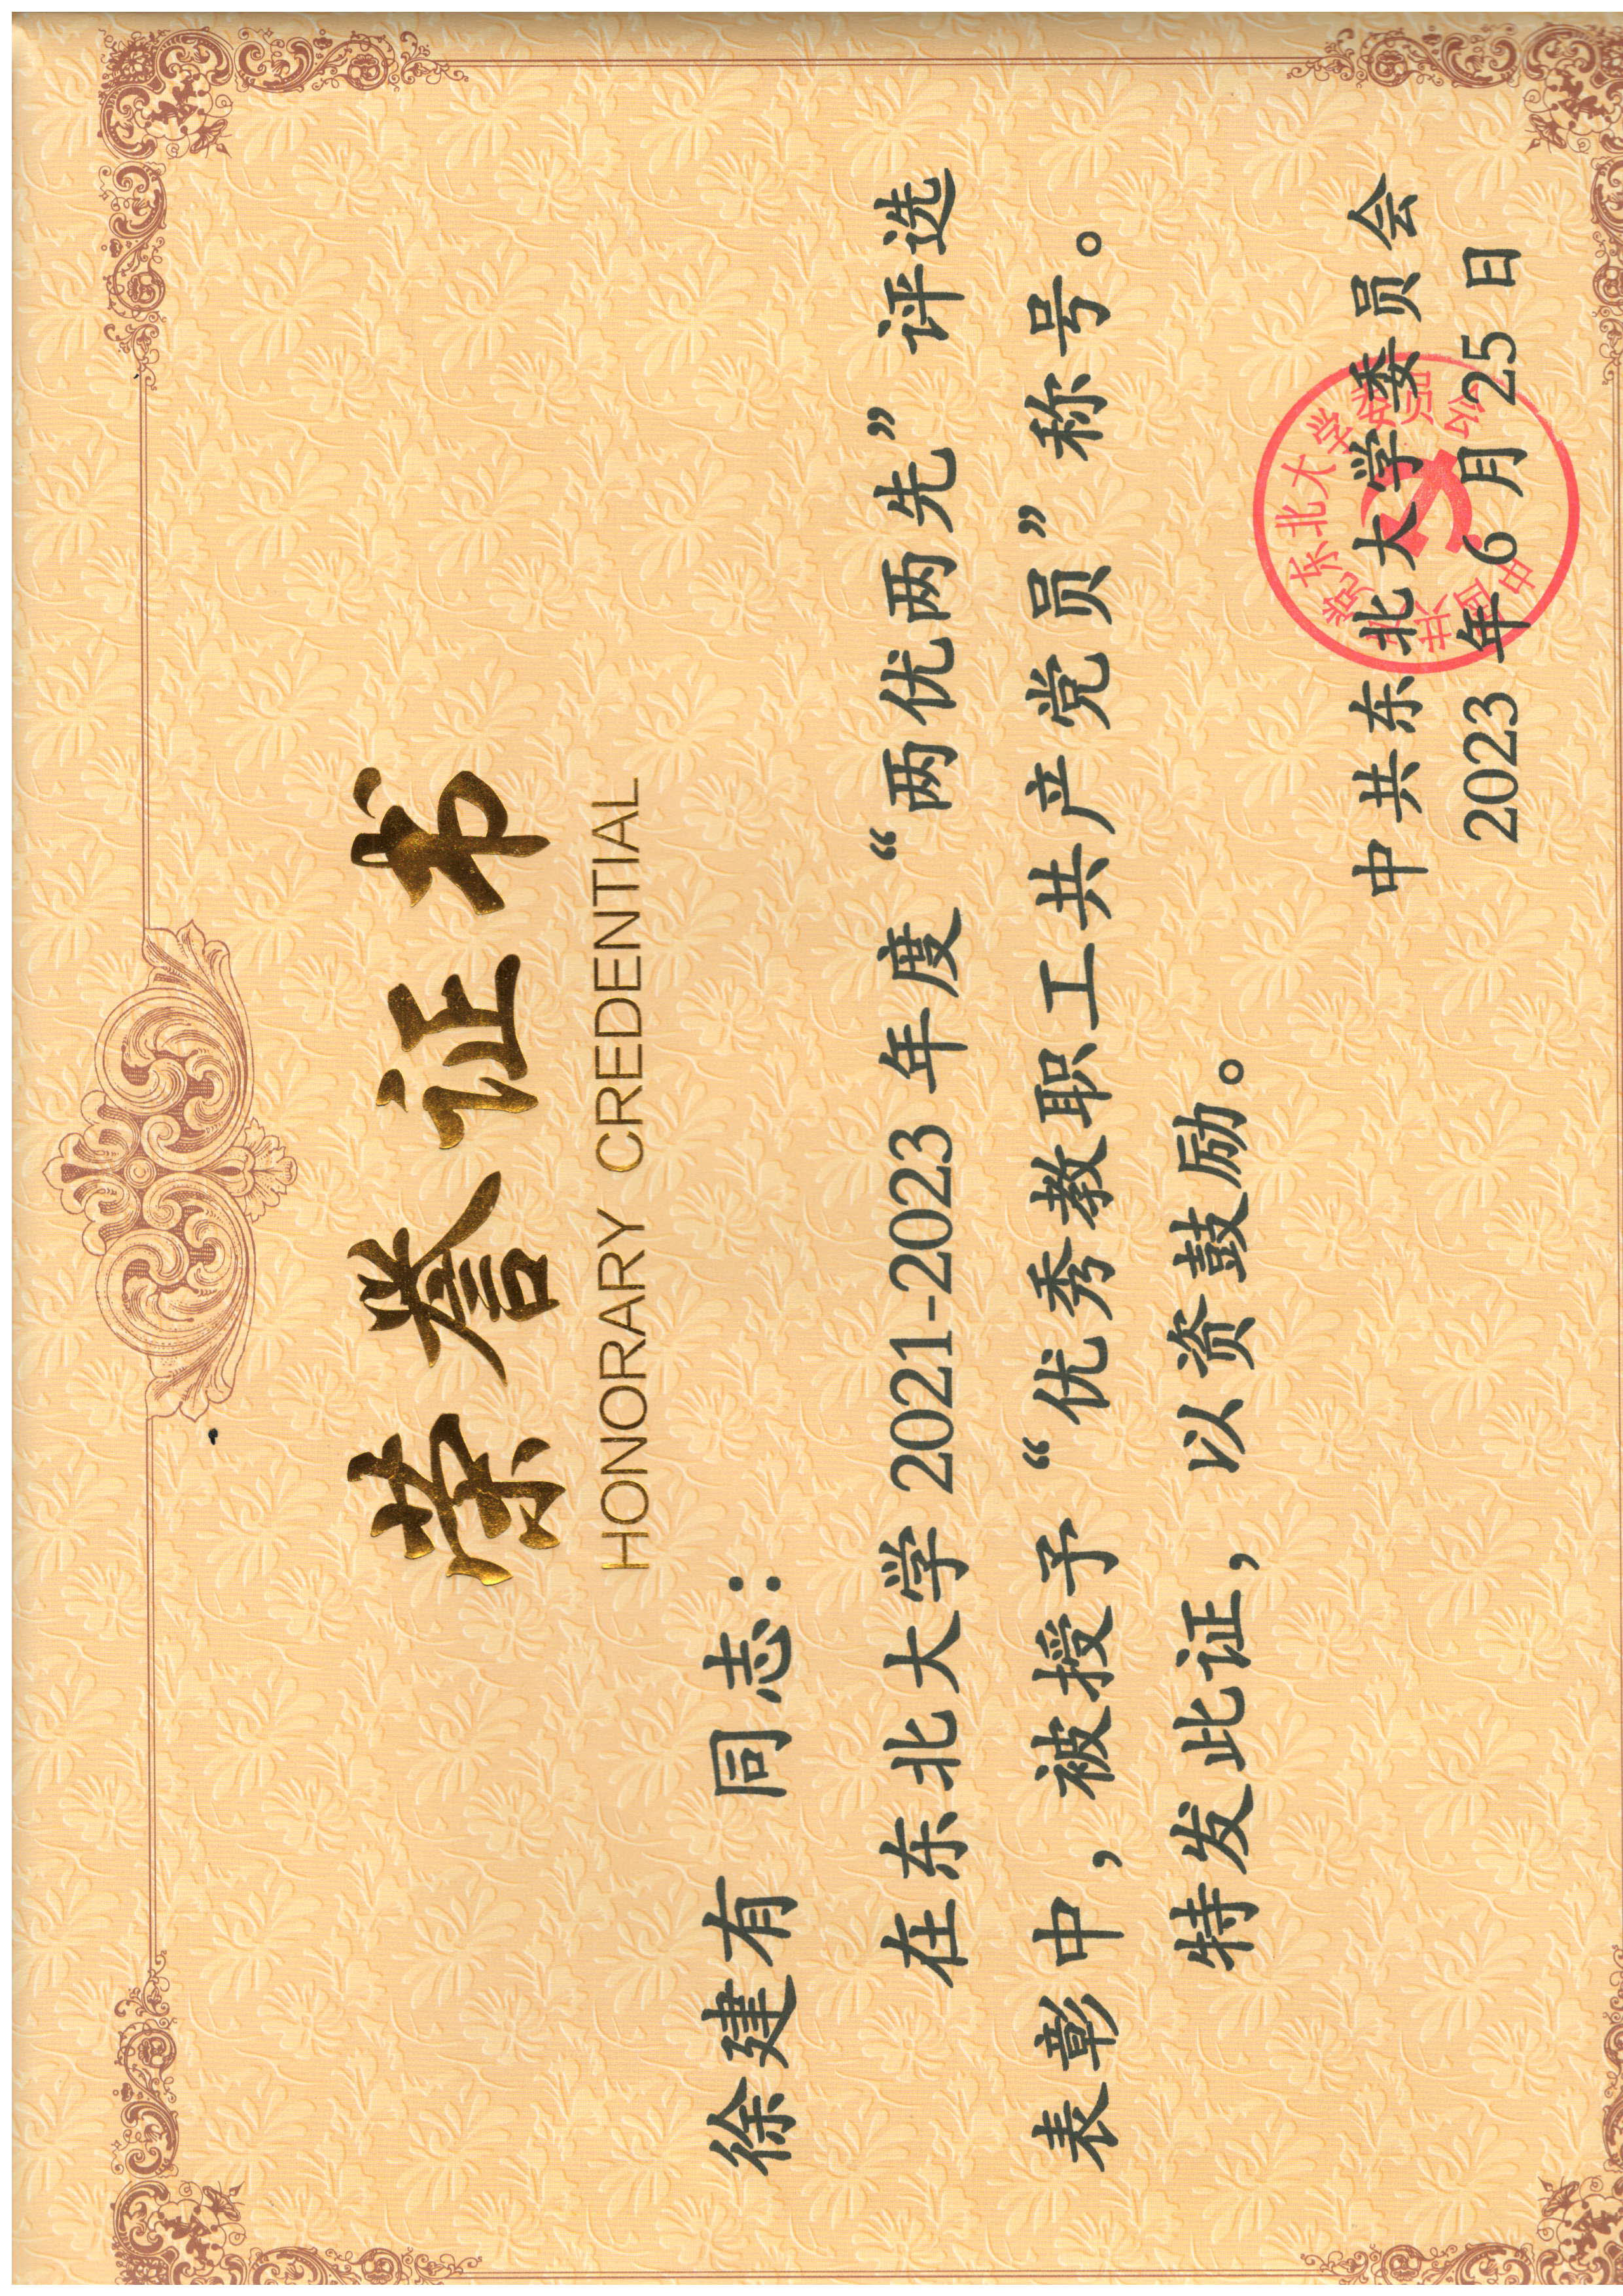 荣誉证书
HONORARY CREDENTIAL
徐建有 同志：
在东北大学 2021-2023 年度“两优两先”评选
表彰中，被授予“优秀教职工共产党员”称号。
特发此证，以资鼓励。
中共东北大学委员会
2023 年 6 月 25 日
中国共产党东北大学委员会